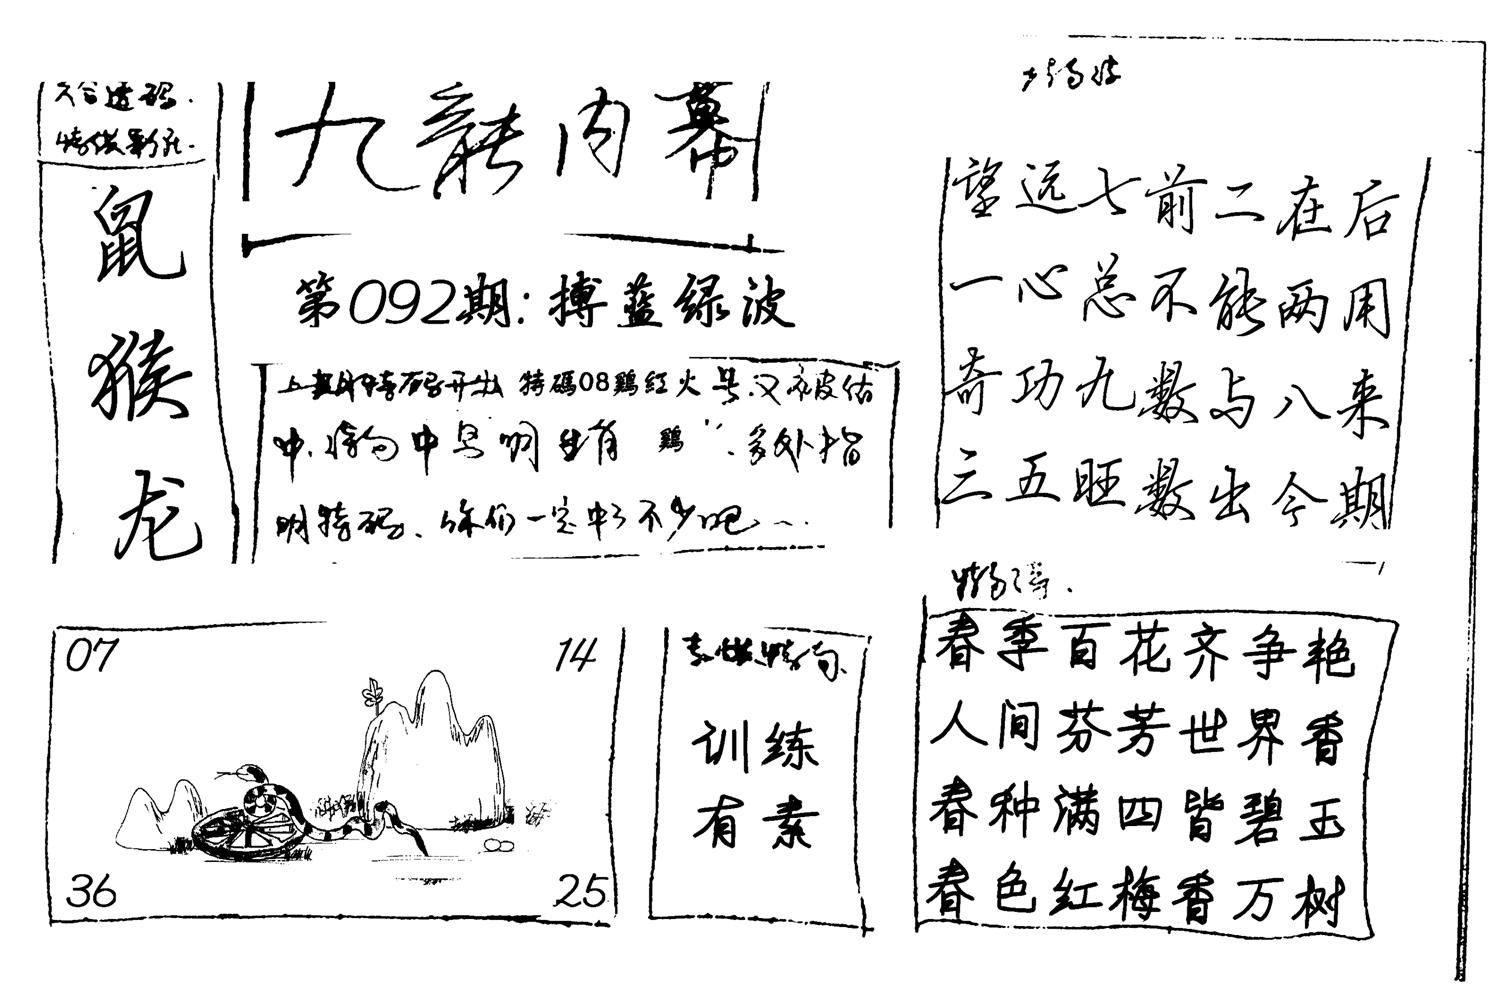 六合透码.
鼠
猴
龙
九龍内幕
第092期:搏蓝绿波
上期特码开出 特碼08鷄红火 号.又被估
中.特句中 明生肖 鷄 多处指
明特码、你们一定中了不少吧
07
14
36
25
训练
有素
望远七前二在后
一心总不能两用
奇功九数与八来
三五旺数出今期
春季百花齐争艳
人间芬芳世界香
春种满四皆碧玉
春色红梅香万树